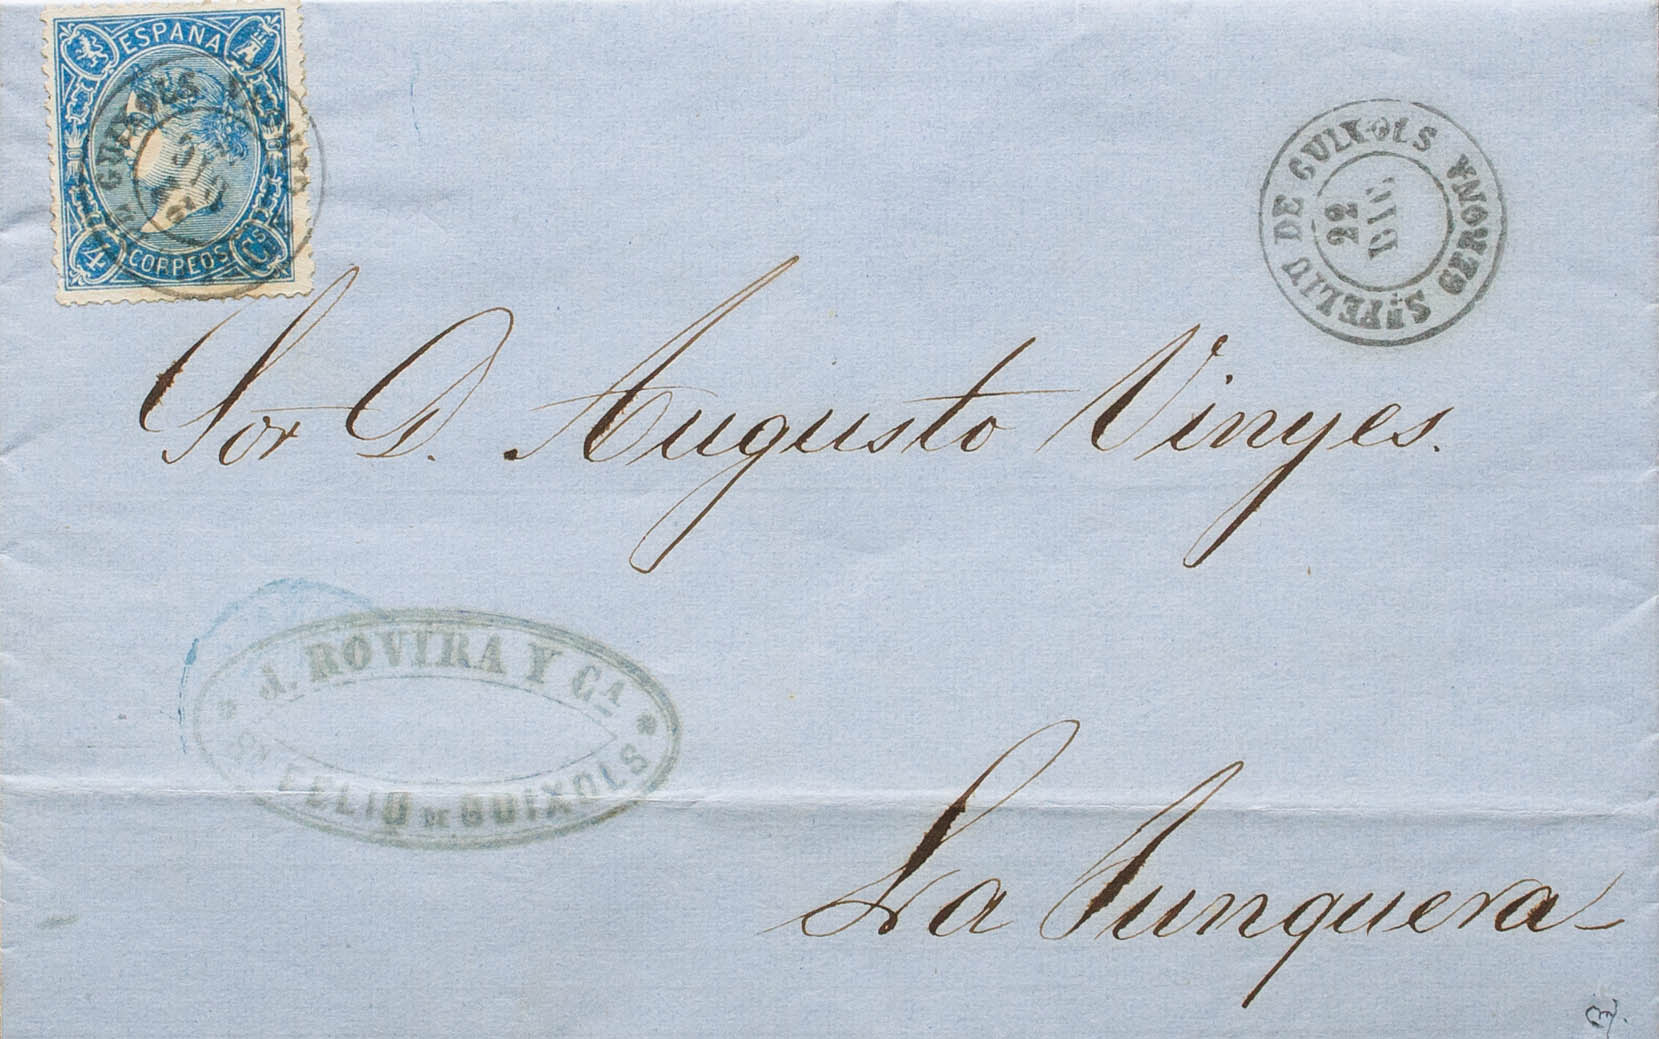 ESPAÑA
4 CORREOS Cs
Sn FELIU DE GUIXOLS GERONA
22
DIC.
Sor D. Augusto Vinyes.
J. ROVIRA Y CA
Sn FELIU DE GUIXOLS
La Junquera